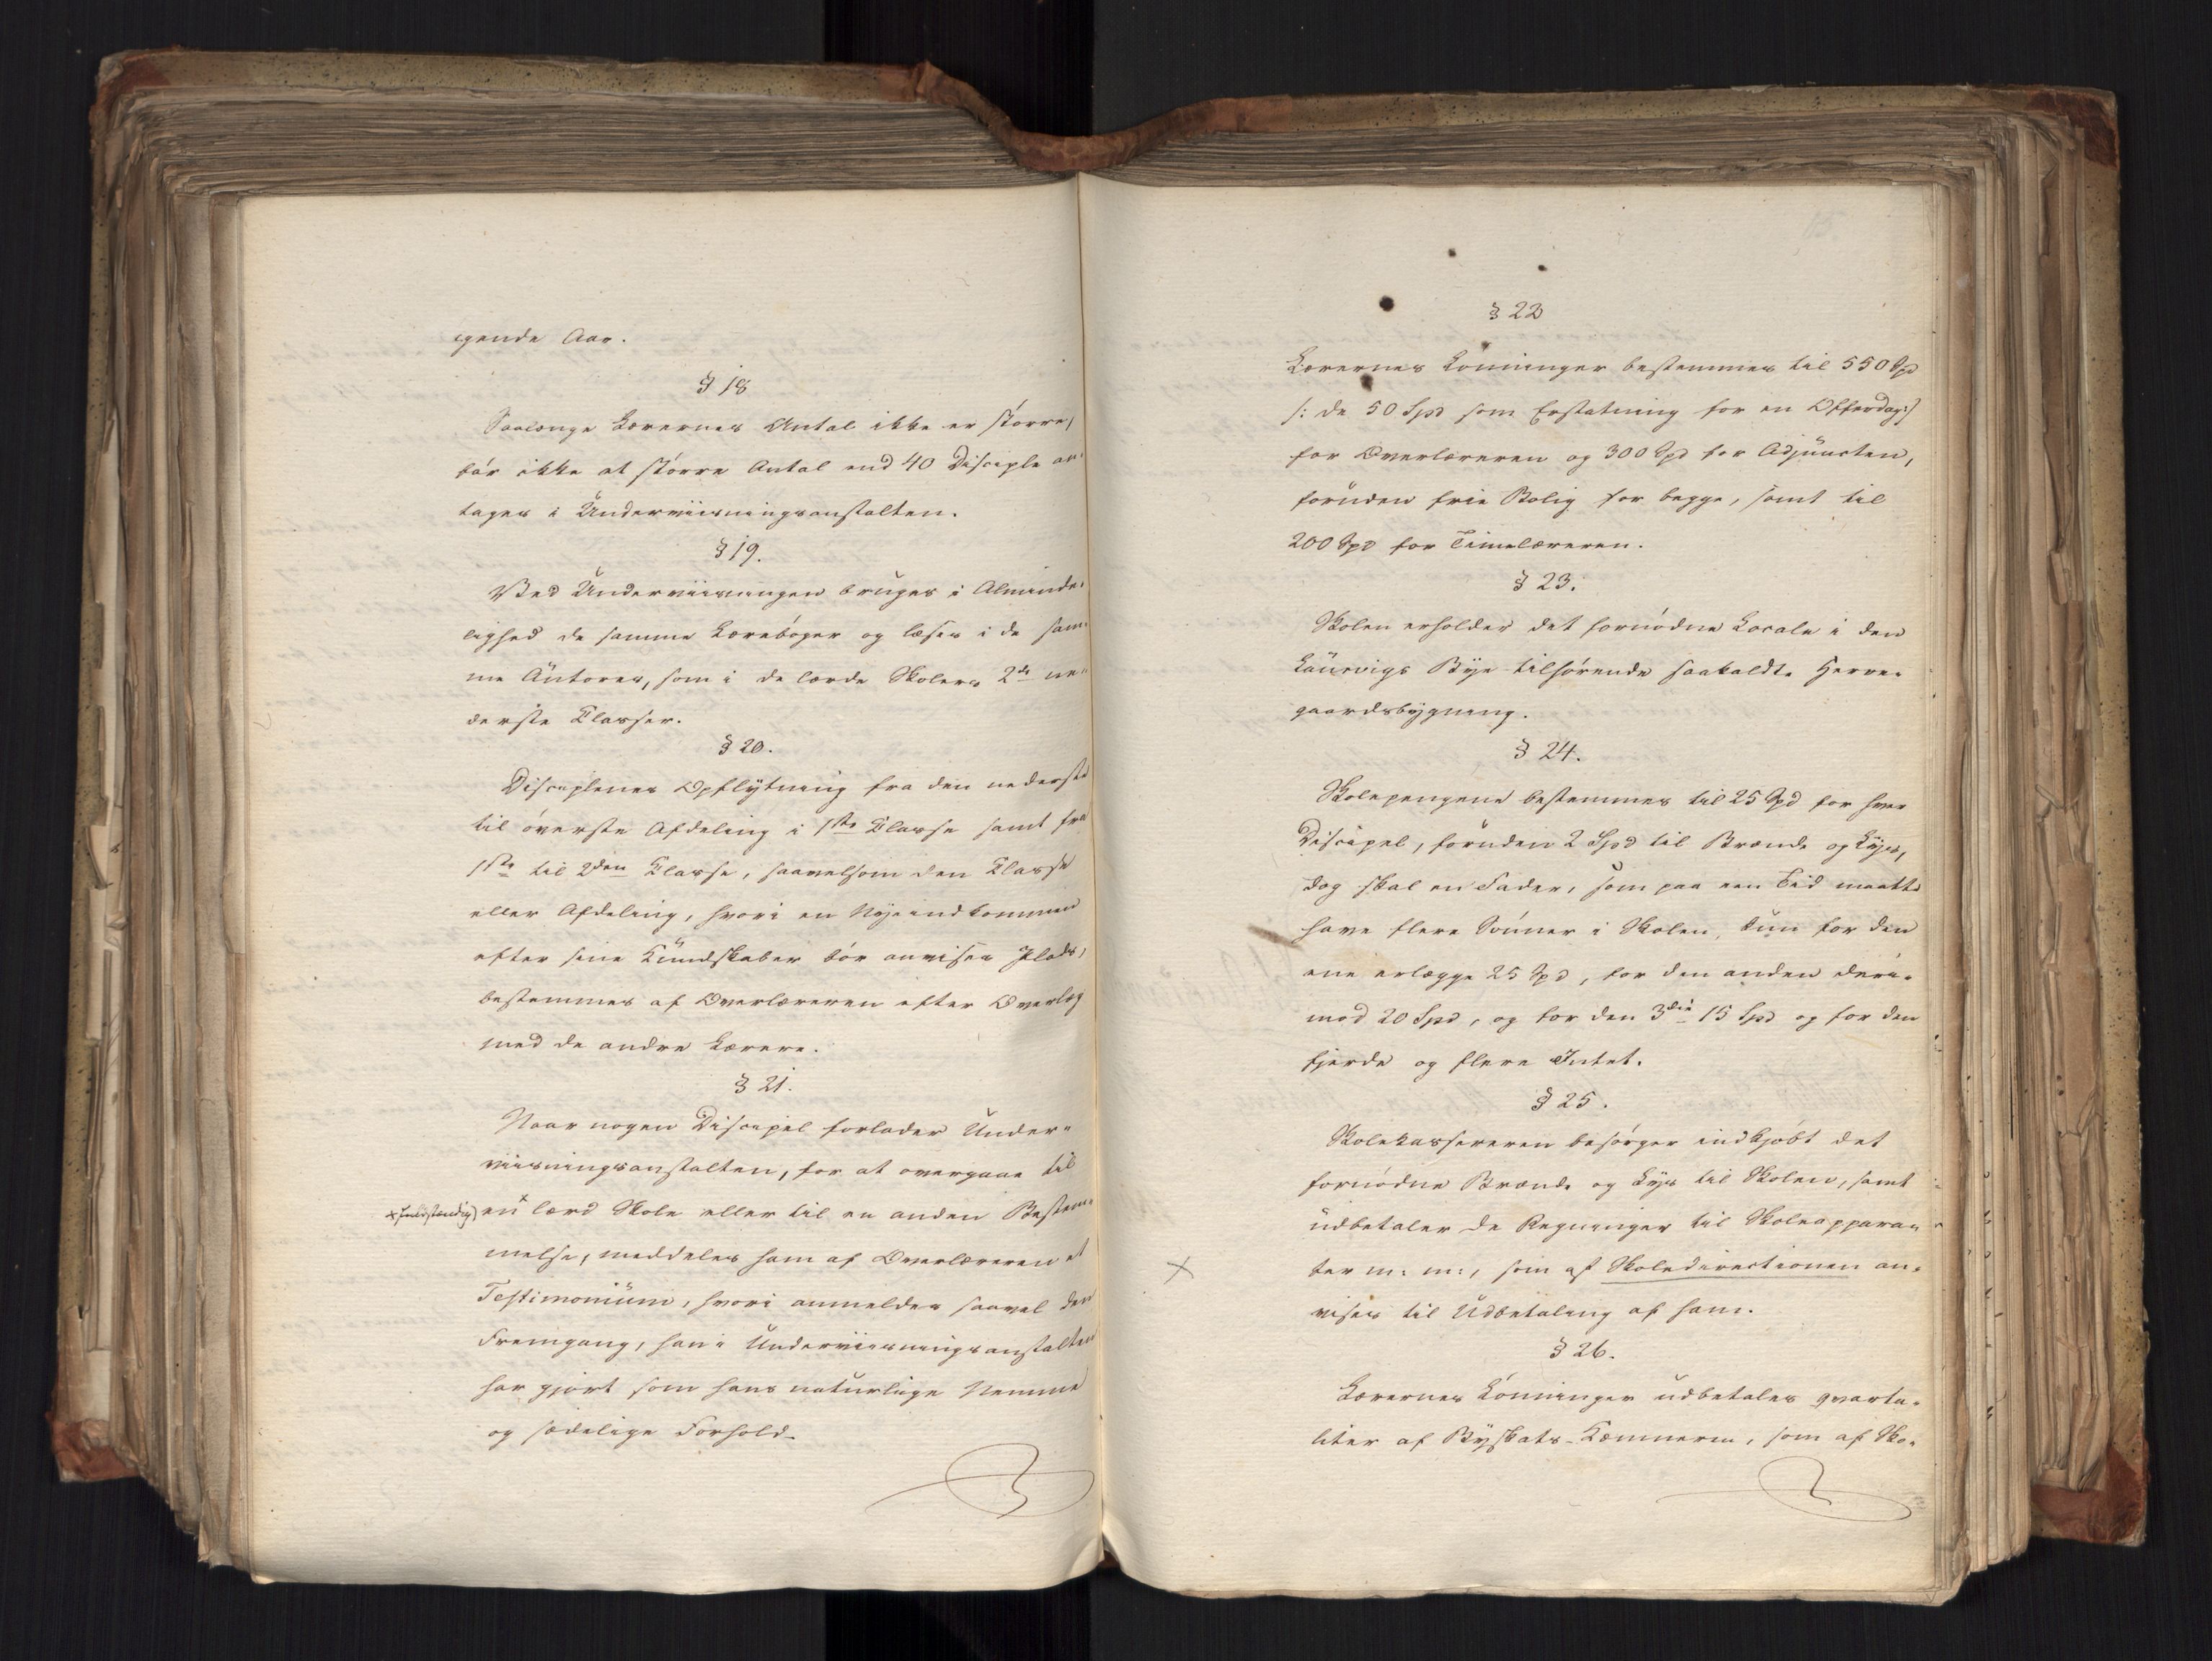 gende Aar.
§ 18
Saalænge Lærernes Antal ikke er större,
bör ikke at större Antal end 40 Disciple an-
tages i Underviisningsanstalten.
§ 19.
Ved Underviisningen bruges i Alminde-
lighed de samme Lærebøger og læses i de sam-
me Autores, som i de lærde Skolers 2de ne-
derste Classer.
§ 20.
Disciplenes Opflytning fra den nederste
til överste Afdeling i 1ste Classe samt fra
1ste til 2den Classe, saavelsom den Classe
eller Afdeling, hvori en Nyeindkommen
efter sine Kundskaber bör anvises Plads,
bestemmes af Overlæreren efter Overlæg
med de andre Lærere.
§ 21.
Naar nogen Discipel forlader Under-
viisningsanstalten, for at overgaae til
x fuldstændig) en x lærd Skole eller til en anden Bestem-
melse, meddeles ham af Overlæreren et
Testimonium, hvori anmeldes saavel den
Fremgang, han i Underviisningsanstalten
har gjort som hans naturlige Nemme
og sædelige Forhold.
§ 22
Lærernes Lönninger bestemmes til 550 Spd
/: de 50 Spd som Erstatning for en Offerdag :/
for Overlæreren og 300 Spd for Adjuncten,
foruden frie Bolig for begge, samt til
200 Spd for Timelæreren.
§ 23.
Skolen erholder det fornödne Locale i den
Laurvigs Bye tilhörende saakaldte Herre-
gaardsbygning.
§ 24.
Skolepengene bestemmes til 25 Spd for hver
Discipel, foruden 2 Spd til Brænde og Lys,
dog skal en Fader, som paa een Tid maatte
have flere Sönner i Skolen, kun for den
ene erlægge 25 Spd, for den anden deri-
mod 20 Spd, og for den 3die 15 Spd og for den
fjerde og flere Intet.
§ 25.
Skolekassereren besörger indkjöbt det
fornödne Brænde og Lys til Skolen, samt
udbetaler de Regninger til Skoleappara-
x ter m: m:, som af Skoledirectionen an-
vises til Udbetaling af ham.
§ 26.
Lærernes Lönninger udbetales qvarta-
liter af Byskats-Kæmneren, som af Sko-